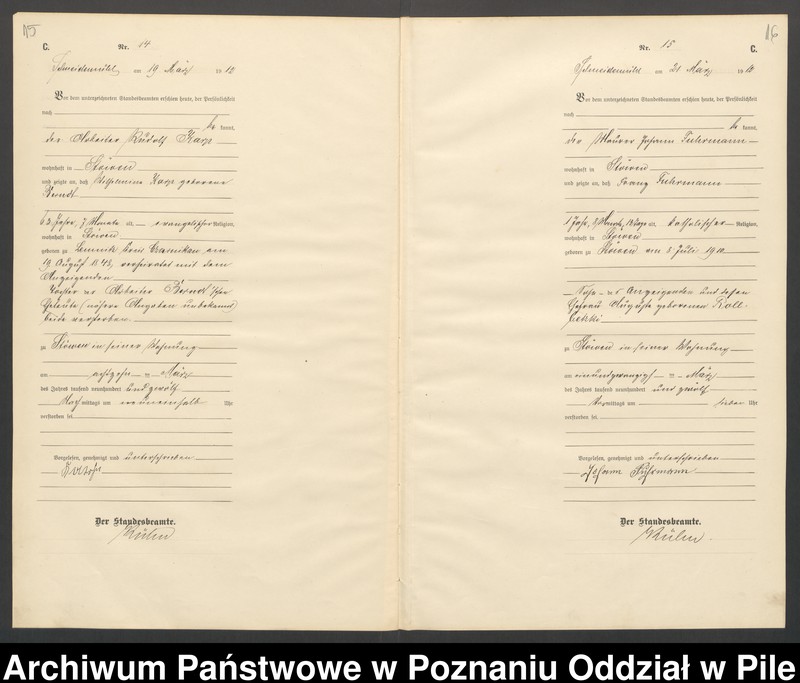 15
C.
Nr. 14
Schneidemühl, am 19 März 1912
Vor dem unterzeichneten Standesbeamten erschien heute, der Persönlichkeit
nach
be kannt,
der Arbeiter Rudolf
wohnhaft in Stöwen
und zeigte an, daß Wilhelmine geborene
63 Jahr, 7 Monate alt, evangelischer Religion,
wohnhaft in Stöwen
geboren zu Kreis Czarnikau am
19 August 1848, verheiratet mit dem
Anzeigenden
Tochter der Arbeiter
Eheleute (nähere Angaben unbekannt)
beide verstorben.
zu Stöwen in seiner Wohnung
am achtzehn ten März
des Jahres tausend neunhundert und zwölf
Nach mittags um Uhr
verstorben sei
Vorgelesen, genehmigt und unterschrieben
Der Standesbeamte.
16
Nr. 15
C.
Schneidemühl am 21 März 1912
Vor dem unterzeichneten Standesbeamten erschien heute, der Persönlichkeit
nach
be kannt,
der Maurer Johann Fuhrmann
wohnhaft in Stöwen
und zeigte an, daß Franz Fuhrmann
1 Jahr, 8 Monate, alt, katholischer Religion,
wohnhaft in Stöwen
geboren zu Stöwen am 3 Juli 1910
Sohn des Anzeigenden und dessen
Ehefrau Auguste geborenen
zu Stöwen in seiner Wohnung
am einundzwanzigsten März
des Jahres tausend neunhundert und zwölf
Vormittags um sieben Uhr
verstorben sei
Vorgelesen, genehmigt und unterschrieben
Johann Fuhrmann
Der Standesbeamte.
Archiwum Państwowe w Poznaniu Oddział w Pile